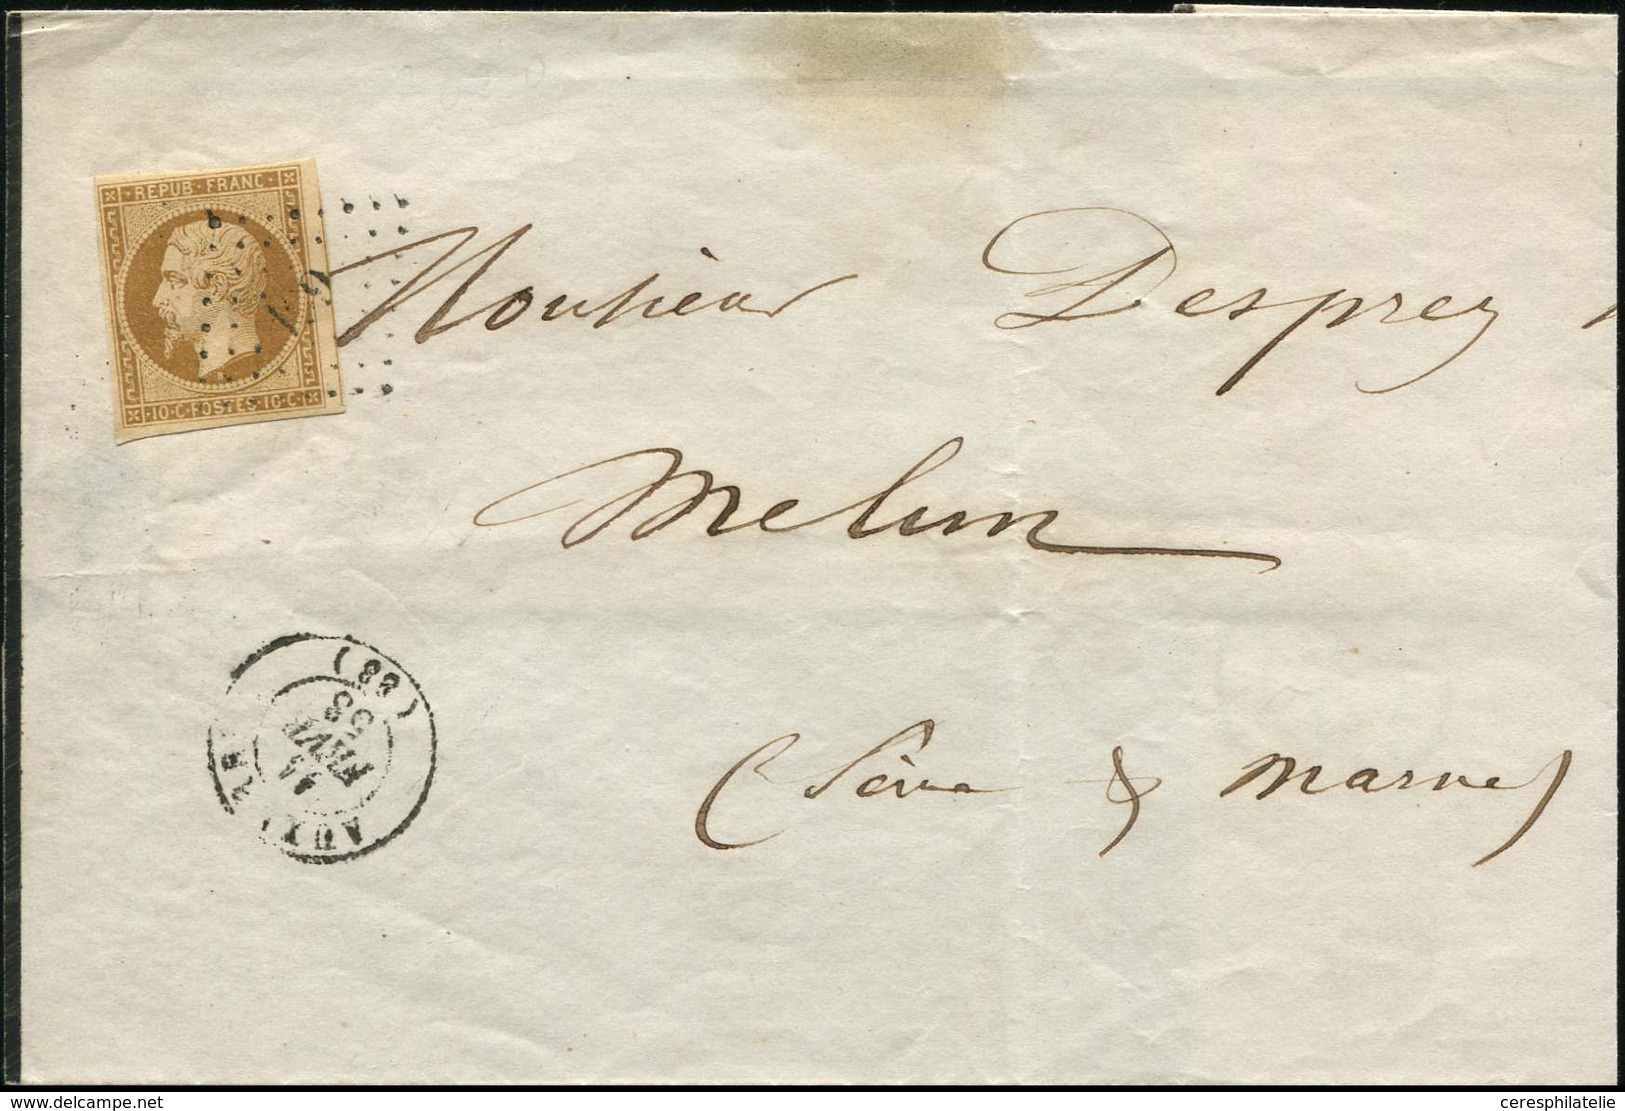 REPUB·FRANC·
10·C·POSTES·10·C·
Monsieur Desprez
Melun
(Seine & Marne)
(88)
FEVR
delcampe.com
ceresphilatelie